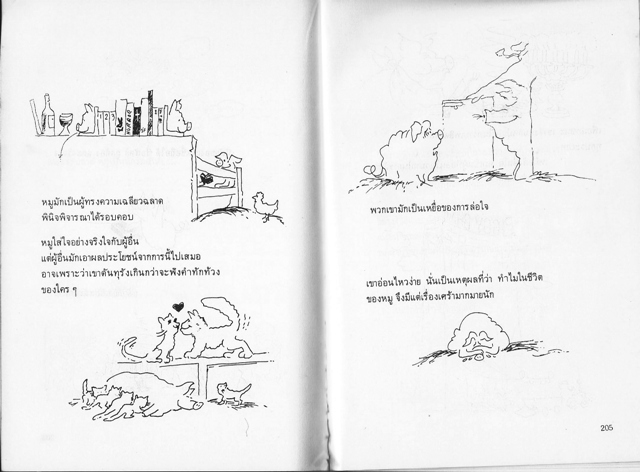 1 2 3
หมูมักเป็นผู้ทรงความเฉลียวฉลาด
พินิจพิจารณาได้รอบคอบ
หมูใส่ใจอย่างจริงใจกับผู้อื่น
แต่ผู้อื่นมักเอาผลประโยชน์จากการนี้ไปเสมอ
อาจเพราะว่าเขาดันทุรังเกินกว่าจะฟังคำทักท้วง
ของใคร ๆ
พวกเขามักเป็นเหยื่อของการล่อใจ
เขาอ่อนไหวง่าย นั่นเป็นเหตุผลที่ว่า ทำไมในชีวิต
ของหมู จึงมีแต่เรื่องเศร้ามากมายนัก
205